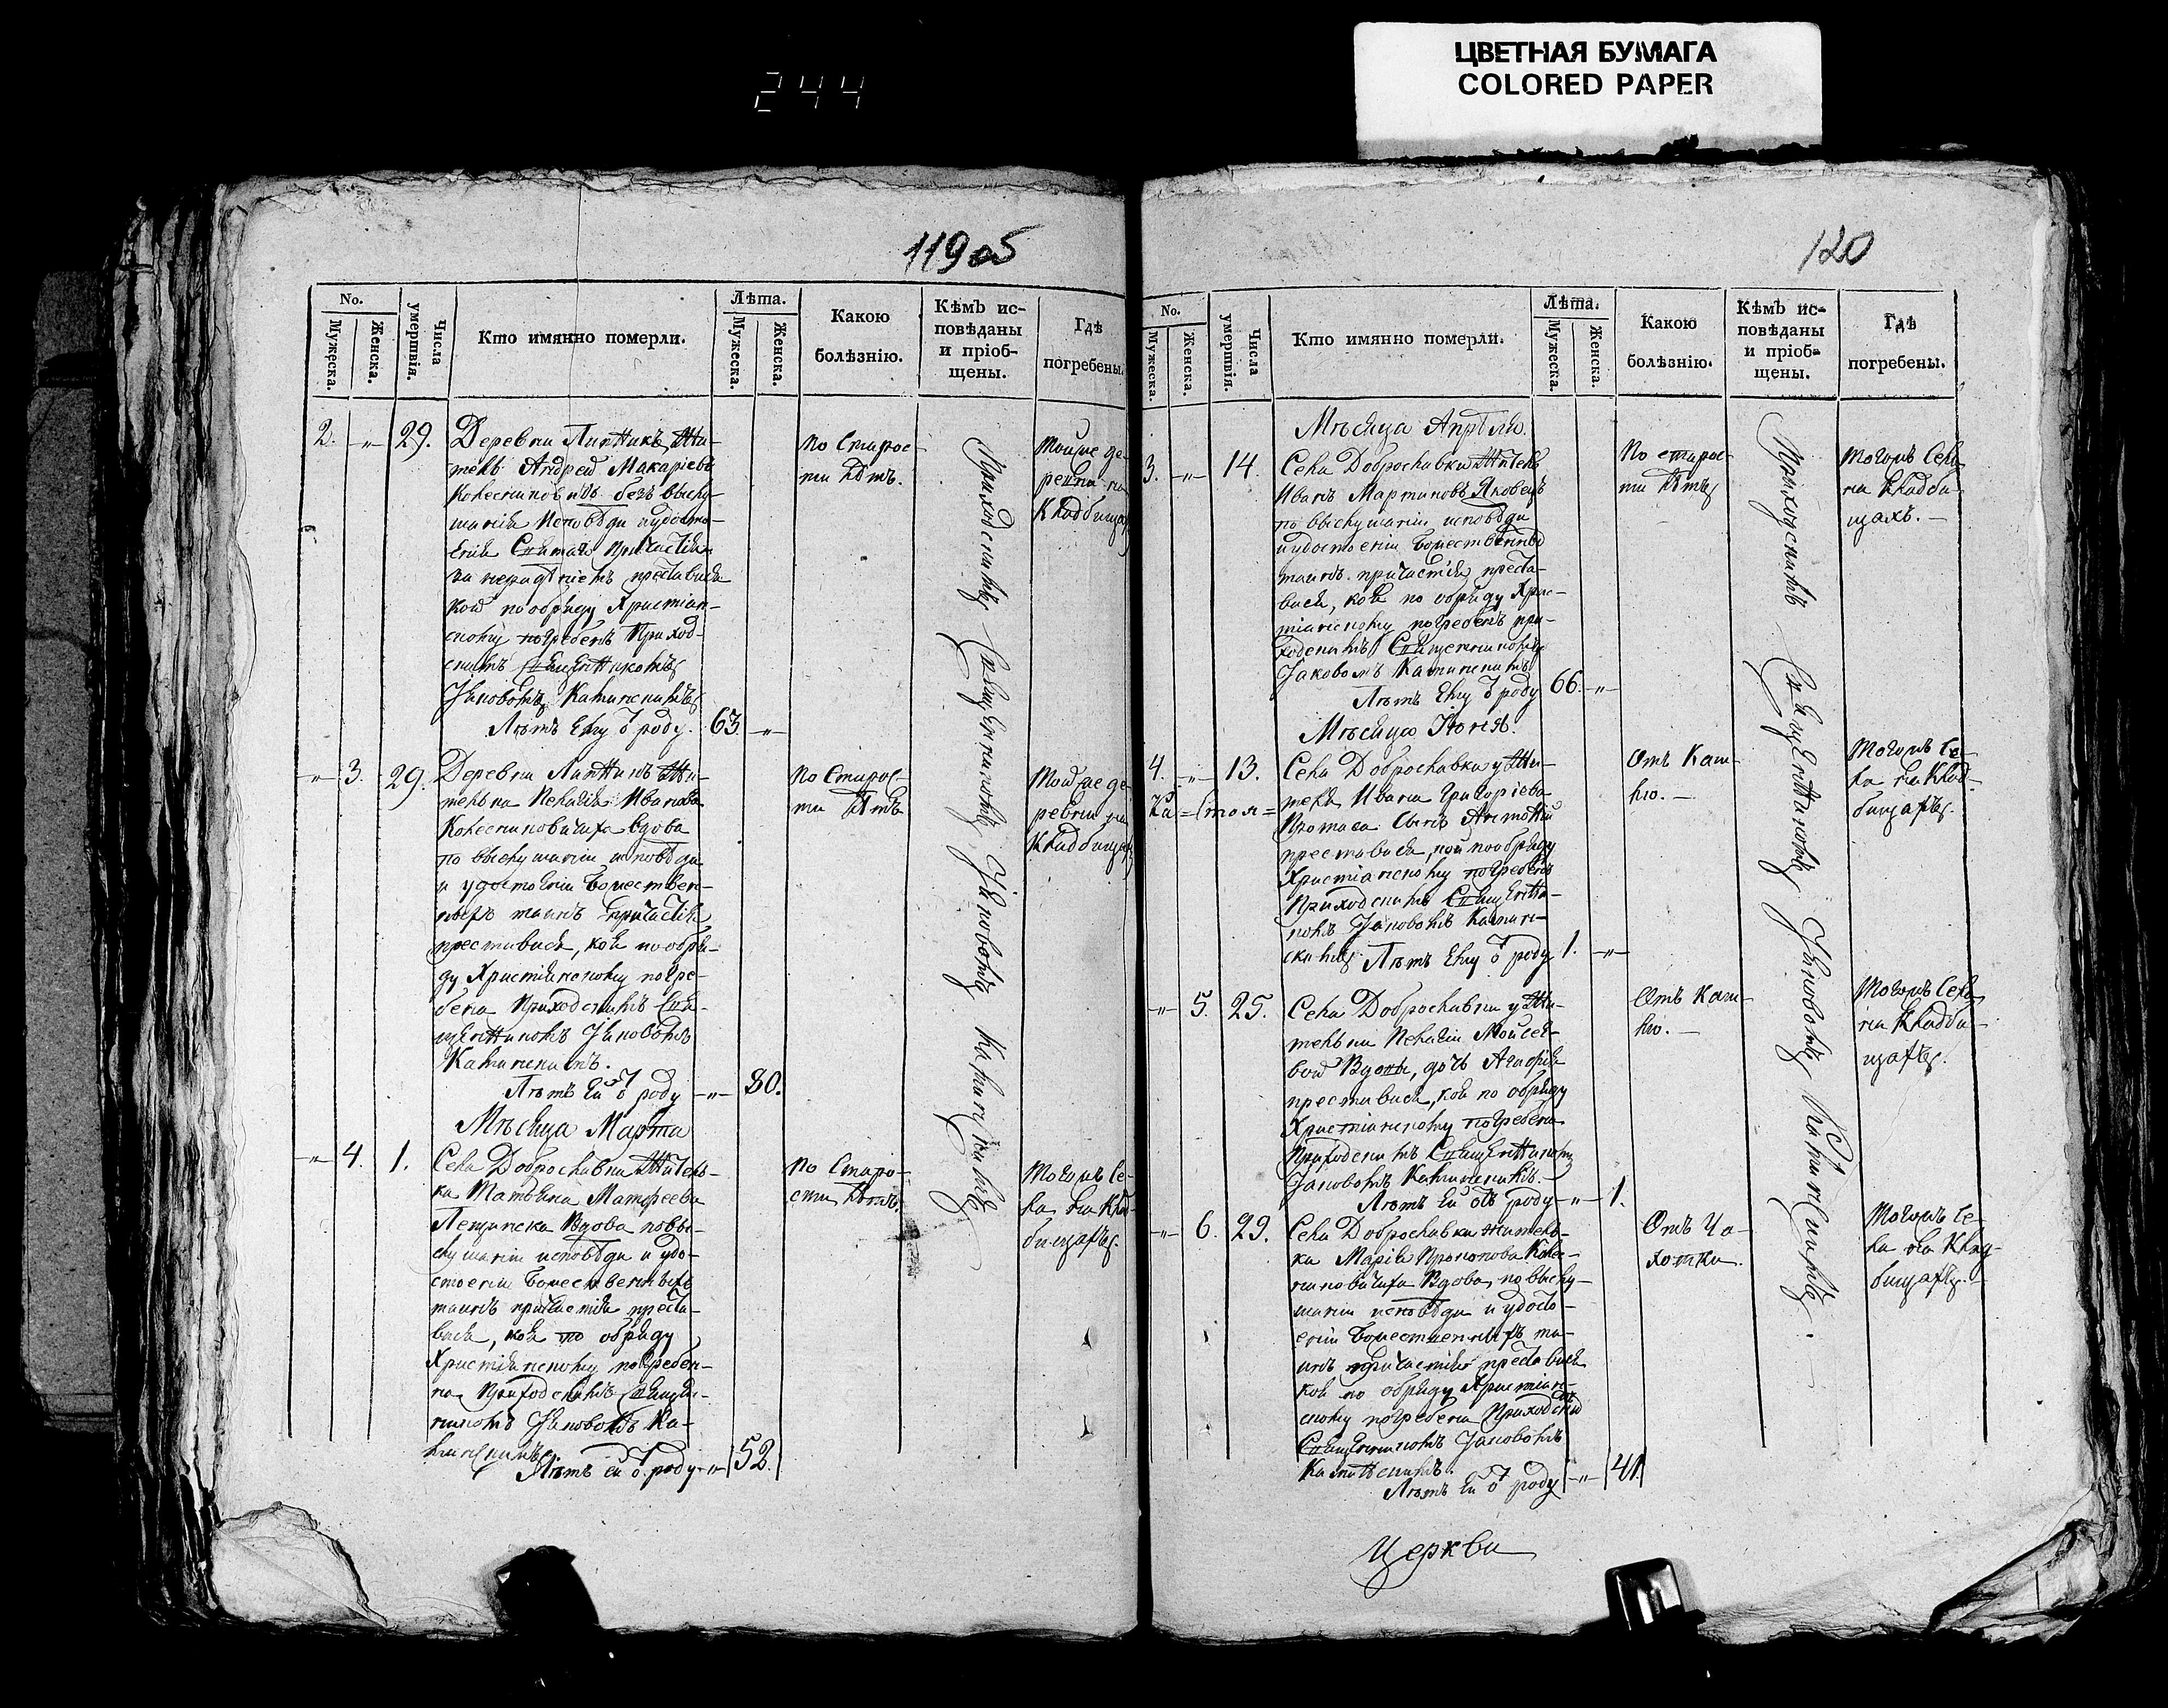 ЦВЕТНАЯ БУМАГА
COLORED PAPER
244
119об
No.
Мужеска.
Женска.
Числа
умертвія.
Кто имянно померли.
Лѣта.
Мужеска.
Женска.
Какою
болѣзнію.
Кѣмъ ис-
повѣданы
и пріоб-
щены.
Гдѣ
погребены.
2. -„- 29.
Деревни Липникъ Жи-
тель Андрей Макаріевъ
безъ выслу-
шанія Исповѣди и удосто-
енія Святаго Причастія
преставися
кой по обряду Христіан-
скому погребенъ Приход-
скимъ Священникомъ
Іаковомъ Каминскимъ
Лѣтъ Ему ѿ роду. 63. -„-
По Старос-
ти Лѣтъ.
Тойже де-
ревни на
Кладбищахъ
Приходскимъ Священникомъ Іаковомъ Каминскимъ
-„- 3. 29.
Деревни Липникъ Жи-
телька Пелагія Иванова
Колесниковичиха Вдова
по выслушаніи исповѣди
и удостоеніи Божествен-
ныхъ таинъ причастія
преставися, коя по обря-
ду Христіянскому погре-
бена Приходскимъ Свя-
щенникомъ Іаковомъ
Каминскимъ.
Лѣтъ Ей ѿ роду -„- 80.
По Старос-
ти Лѣтъ
Тойже де-
ревни на
Кладбищахъ
Мѣсяца Марта
-„- 4. 1.
Села Доброславки Житель-
ка Татьяна Матфеева
Вдова по вы-
слушаніи исповѣди и удо-
стоеніи Божественныхъ
таинъ причастія преста-
вися, коя по обряду
Христіянскому погребен-
на Приходскимъ Священ-
никомъ Іаковомъ Ка-
минскимъ
Лѣтъ ей ѿ роду -„- 52.
По Старо-
сти Лѣтъ.
Тогожъ Се-
ла на Клад-
бищахъ.
120
No.
Мужеска.
Женска.
Числа
умертвія.
Кто имянно померли.
Лѣта.
Мужеска.
Женска.
Какою
болѣзнію.
Кѣмъ ис-
повѣданы
и пріоб-
щены.
Гдѣ
погребены.
Мѣсяца Апрѣля.
3. -„- 14.
Села Доброславки Житель
Иванъ Мартиновъ Яковецъ
по выслушаніи исповѣди
и удостоеніи Божественныхъ
таинъ причастія преста-
вися, кой по обряду Хрис-
тіянскому погребенъ при-
ходскимъ Священникомъ
Іаковомъ Каминскимъ
Лѣтъ Ему ѿ роду 66. -„-
По старос-
ти Лѣтъ
Тогожъ Села
на Кладби-
щахъ.-
Приходскимъ Священникомъ Іаковомъ Каминскимъ.
Мѣсяца Іюня.
4. -„- 13.
Села Доброславки у Жи-
теля Ивана Григоріева
Протаса Сынъ Антоній
преставися, кой по обряду
Христіанскому погребенъ
Приходскимъ Священни-
комъ Іаковомъ Камин-
скимъ Лѣтъ Ему ѿ роду 1. -„-
Отъ Каш-
лю.-
Тогожъ Се-
ла на Клад-
бищахъ.
-„- 5. 25.
Села Доброславки у Жи-
тельки Пелагіи Мойсее-
вой Вдовы, дочь Агафія
преставися, коя по обряду
Христіанскому погребена
Приходскимъ Священникомъ
Іаковомъ Каминскимъ.-
Лѣтъ Ей отъ роду -„- 1.
Отъ Каш-
лю.-
Тогожъ Села
на Кладби-
щахъ.
-„- 6. 29.
Села Доброславки житель-
ка Марія Прокопова Колес-
никовичиха Вдова по выслу-
шаніи исповѣди и удосто-
еніи Божественныхъ та-
инъ причастія преставися
коя по обряду Христіан-
скому погребена Приходскимъ
Священникомъ Іаковомъ
Каминскимъ.
Лѣтъ Ей ѿ роду -„- 41.
Отъ Ча-
хотки.
Тогожъ Се-
ла на Клад-
бищахъ.-
Церкви